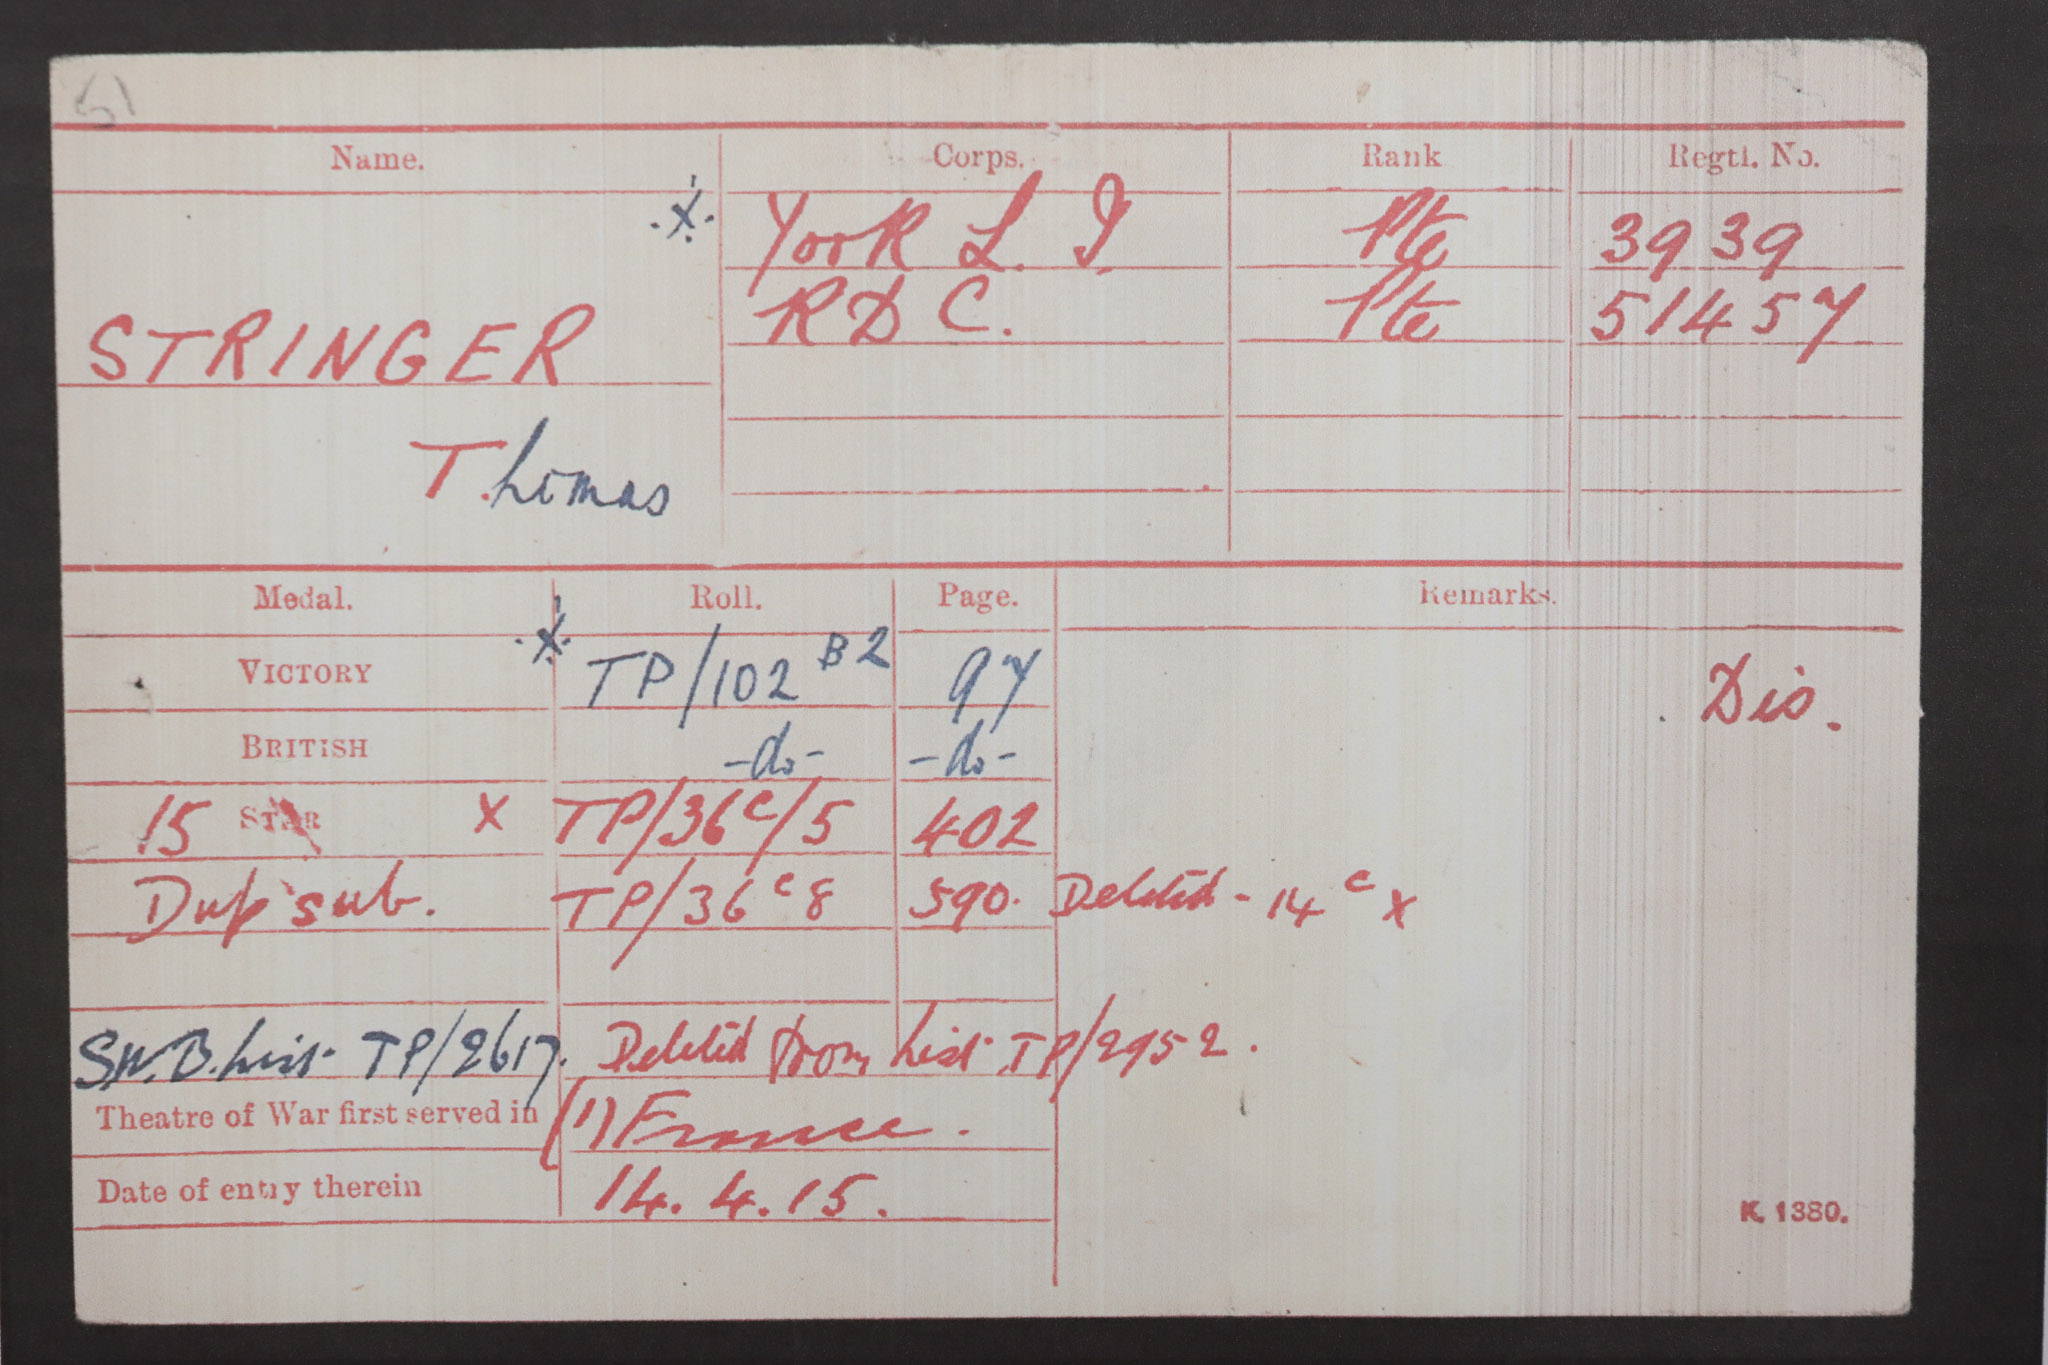 51
Name. Corps. Rank Regtl. No.
·X· York L. I. Pte 3939
STRINGER R D C. Pte 51457
Thomas
Medal. Roll. Page. Remarks.
VICTORY ·X· TP/102 B2 97 Dis.
BRITISH -do- -do-
15 STAR X TP/36C/5 402
Dup sub. TP/36C8 590. Deleted - 14C X
S.W.B. List TP/2617. Deleted from List TP/2952.
Theatre of War first served in (1) France.
Date of entry therein 14.4.15.
K. 1380.